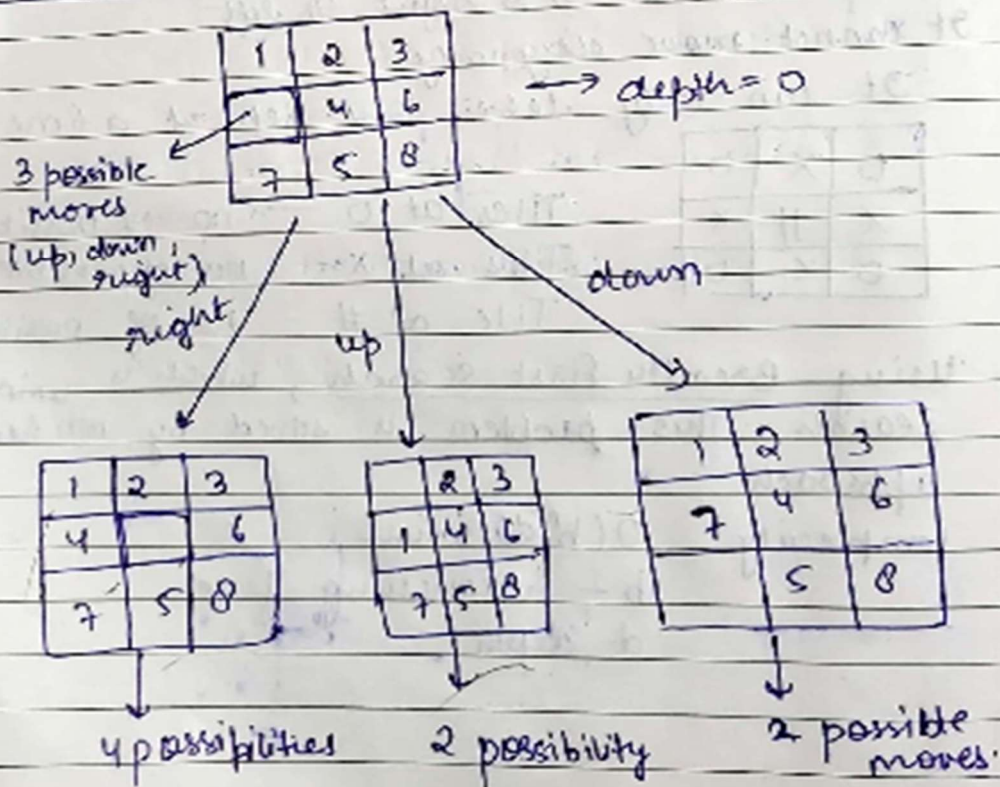 1 2 3
4 6 → depth = 0
7 5 8
3 possible
moves
(up, down,
right)
right
up
down
1 2 3
4 6
7 5 8
2 3
1 4 6
7 5 8
1 2 3
7 4 6
5 8
4 possibilities
2 possibility
2 possible
moves.